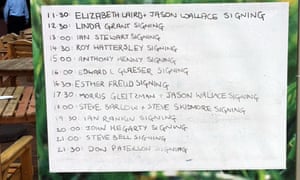 11:30 ELIZABETH LAIRD + JASON WALLACE SIGNING
12:30 LINDA GRANT SIGNING
13:00 IAN STEWART SIGNING
14:30 ROY HATTERSLEY SIGNING
15:00 ANTHONY HENNY SIGNING
16:00 EDWARD L GLAESER SIGNING
16:30 ESTHER FREUD SIGNING
17:30 MORRIS GLEITZMAN + JASON WALLACE SIGNING
18:00 STEVE BARLOW + STEVE SKIDMORE SIGNING
19:30 IAN RANKIN SIGNING
20:00 JOHN HEGARTY SIGNING
21:00 STEVE BELL SIGNING
21:30 DON PATERSON SIGNING